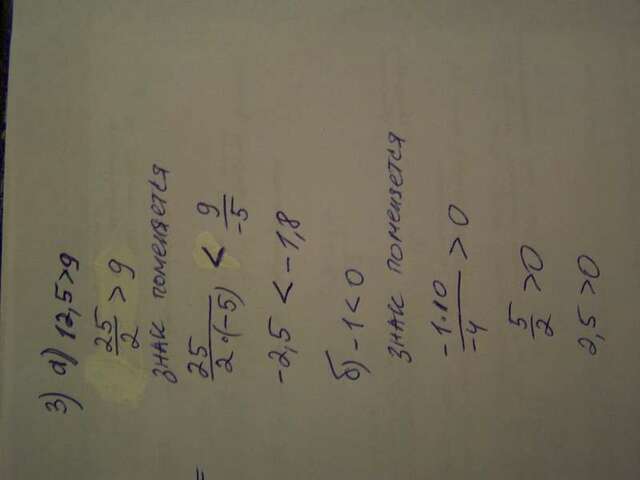 3) а) 12,5>9
25/2 > 9
знак поменяется
25/2·(-5) < 9/-5
-2,5 < -1,8
б) -1 < 0
знак поменяется
-1·10/-4 > 0
5/2 > 0
2,5 > 0
=